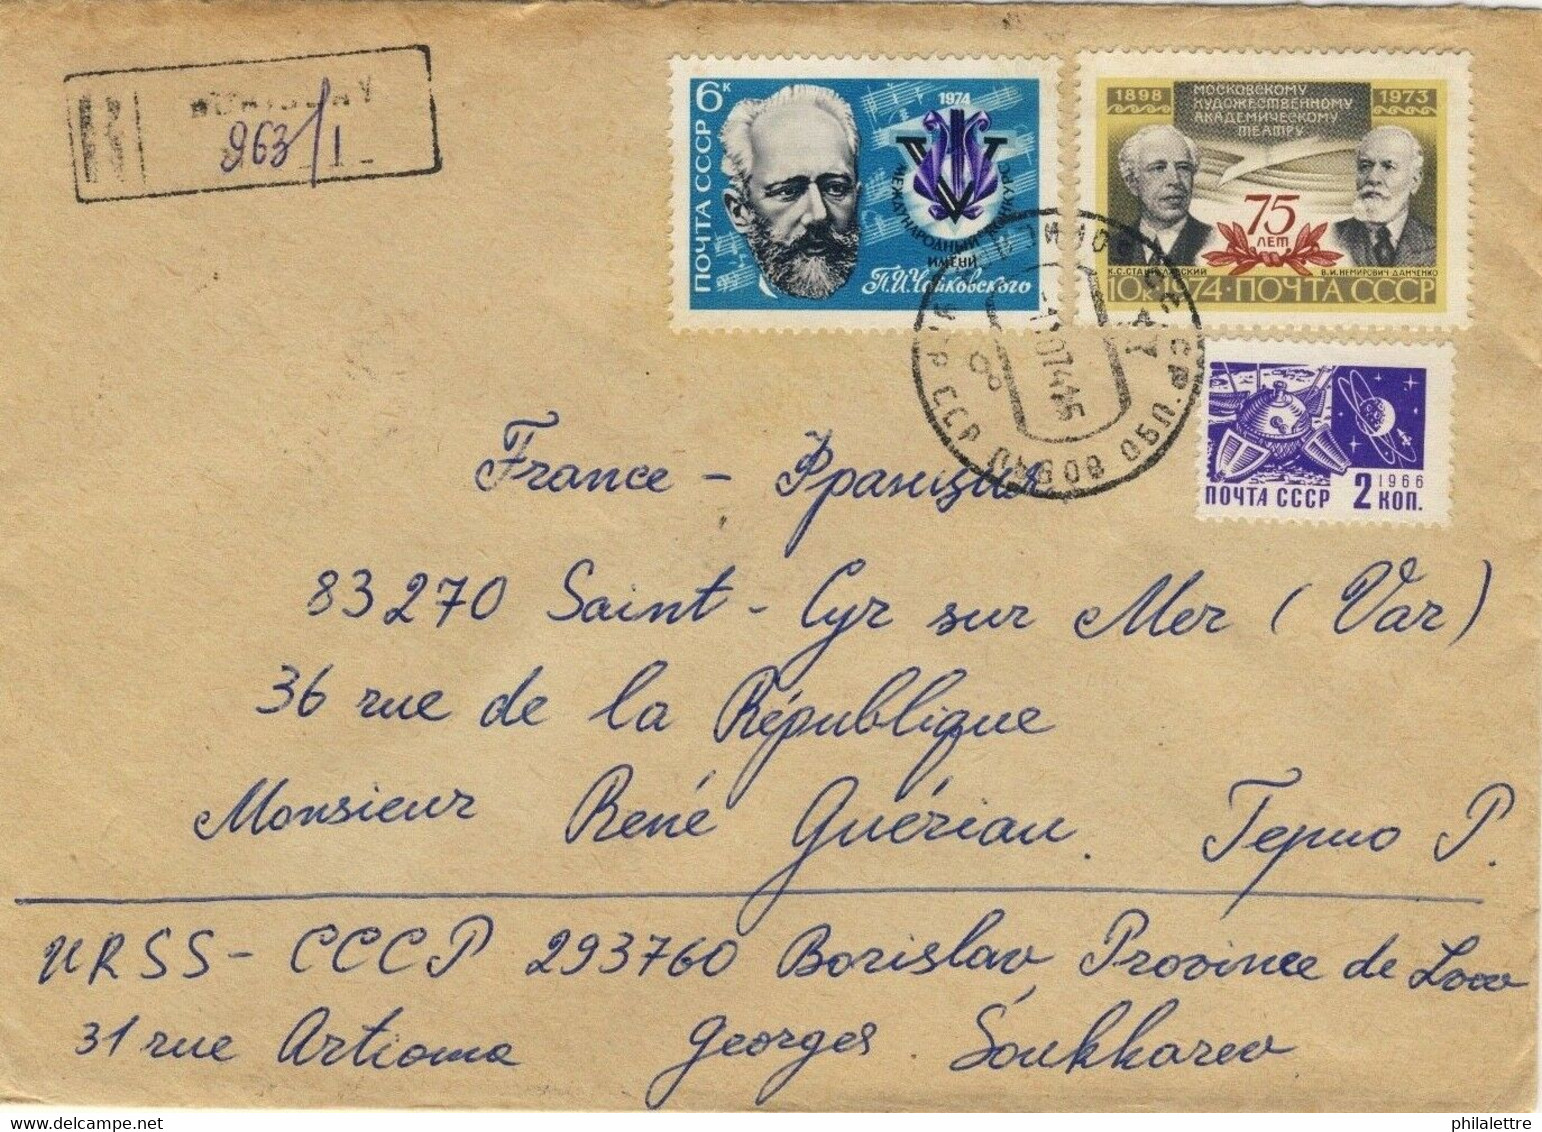 R BORISLAV
963/1
ПОЧТА СССР 6к
1974
V
МЕЖДУНАРОДНЫЙ КОНКУРС
ИМЕНИ
П.И.Чайковского
1898 МОСКОВСКОМУ ХУДОЖЕСТВЕННОМУ АКАДЕМИЧЕСКОМУ ТЕАТРУ 1973
75 ЛЕТ
К.С.СТАНИСЛАВСКИЙ В.И.НЕМИРОВИЧ-ДАНЧЕНКО
10к 1974·ПОЧТА СССР
ПОЧТА СССР 2 КОП. 1966
ССР ЛЬВОВ ОБЛ.
France - Франция
83270 Saint-Cyr sur Mer (Var)
36 rue de la République
Monsieur René Guériau. Герио Р.
URSS - СССР 293760 Borislav Province de Lvov
31 rue Artioma Georges Soukharev
philalettre